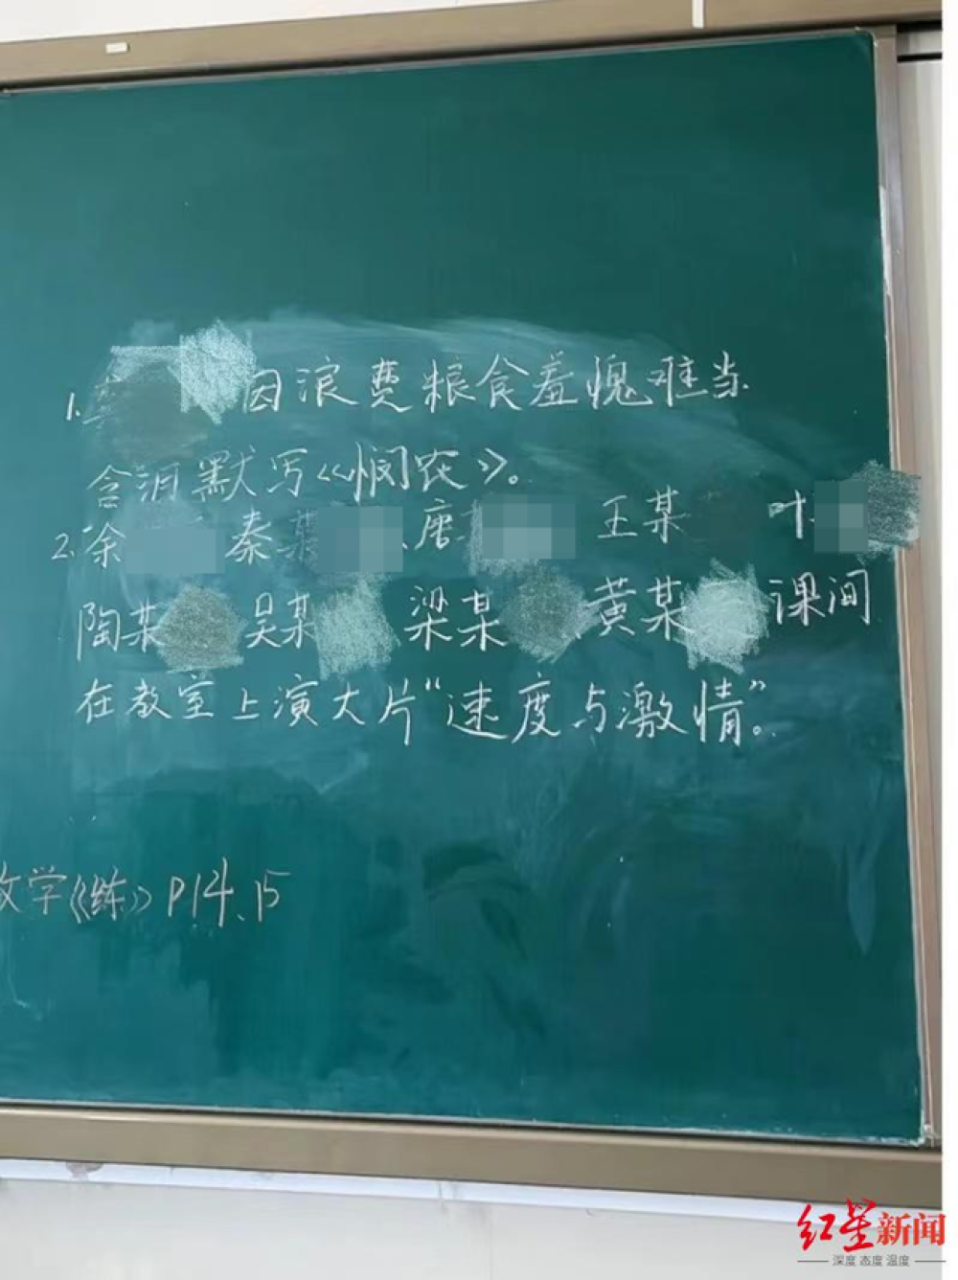 1. 因浪费粮食羞愧难当
含泪默写《悯农》。
2. 徐 秦某 、唐 王某 叶
陶某 吴某 梁某 、黄某 课间
在教室上演大片“速度与激情”。
数学《练》P14、15
红星新闻
深度 态度 温度